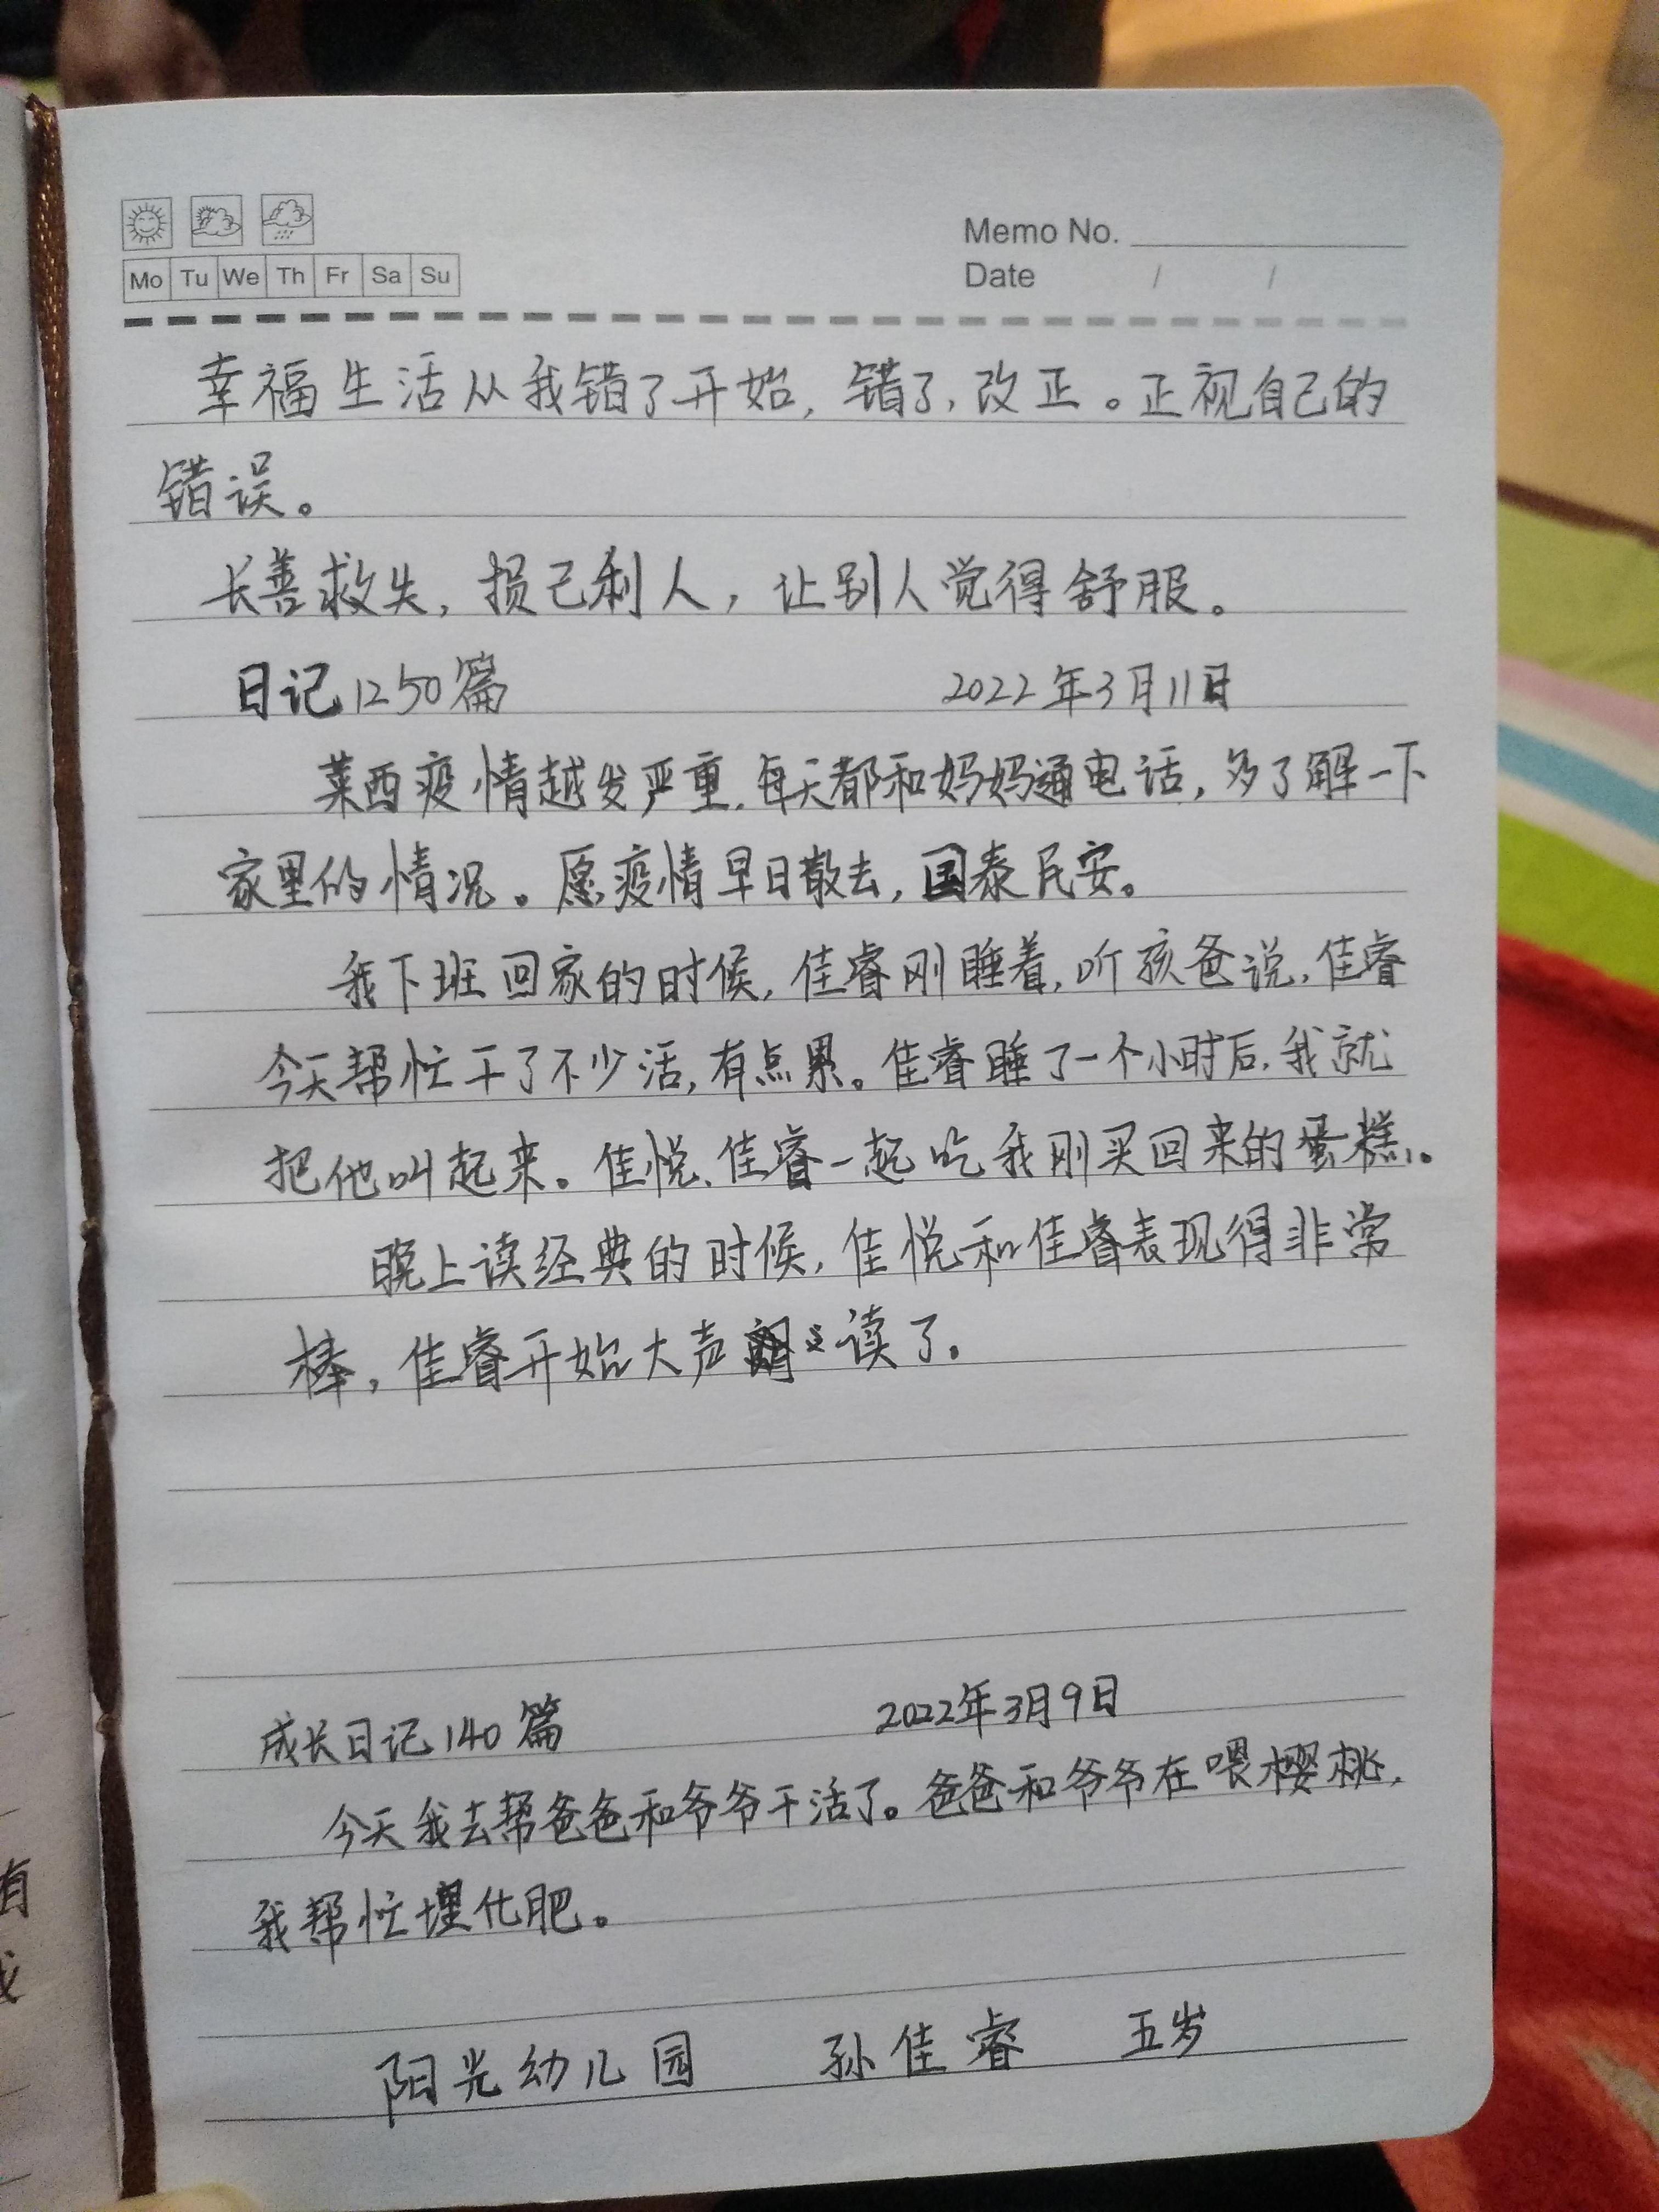 Mo Tu We Th Fr Sa Su
Memo No.
Date / /
幸福生活从我错了开始，错了，改正。正视自己的
错误。
长善救失，损己利人，让别人觉得舒服。
日记1250篇 2022年3月11日
莱西疫情越发严重，每天都和妈妈通电话，多了解一下
家里的情况。愿疫情早日散去，国泰民安。
我下班回家的时候，佳睿刚睡着，听孩爸说，佳睿
今天帮忙干了不少活，有点累。佳睿睡了一个小时后，我就
把他叫起来。佳悦、佳睿一起吃我刚买回来的蛋糕。
晚上读经典的时候，佳悦和佳睿表现得非常
棒，佳睿开始大声读了。
成长日记140篇 2022年3月9日
今天我去帮爸爸和爷爷干活了。爸爸和爷爷在喂樱桃，
我帮忙埋化肥。
阳光幼儿园 孙佳睿 五岁
有